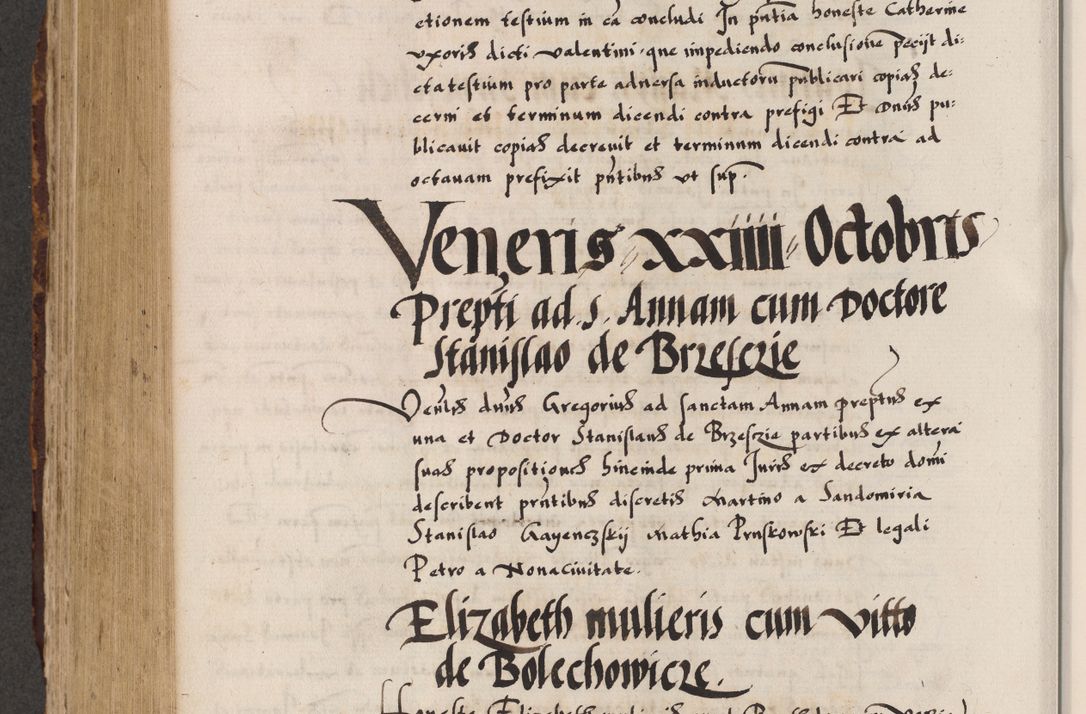 ctionem testium in ca concludi In pntia honeste Catherine
vxoris dicti valentini que impediendo conclusione peciit di:
cta testium pro parte adversa inductoru publicari copias de:
cerni et terminum dicendi contra prefigi Et Dnus pu:
blicauit copias decreuit et terminum dicendi contra ad
octauam prefixit pntibus vt sup.
Veneris xxiiii Octobris
Prepti ad .s. Annam cum Doctore
Stanislao de Brzesczie
Venlis dnus Gregorius ad sanctam Annam preptus ex
una et Doctor Stanislaus de Brzesczie partibus ex altera
suas propositiones hincinde prima Juris ex decreto domi
describent pntibus discretis Martino a Sandomiria
Stanislao Gayenczskij Mathia Pruskowski Et legali
Petro a Nonacivitate.
Elizabeth mulieris cum Vitto
de Bolechowicze.
Honeste Elizabeth